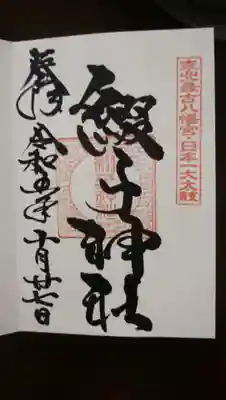 最古八幡宮・日本一大太鼓
綴子神社
奉拝 令和五年十月廿七日